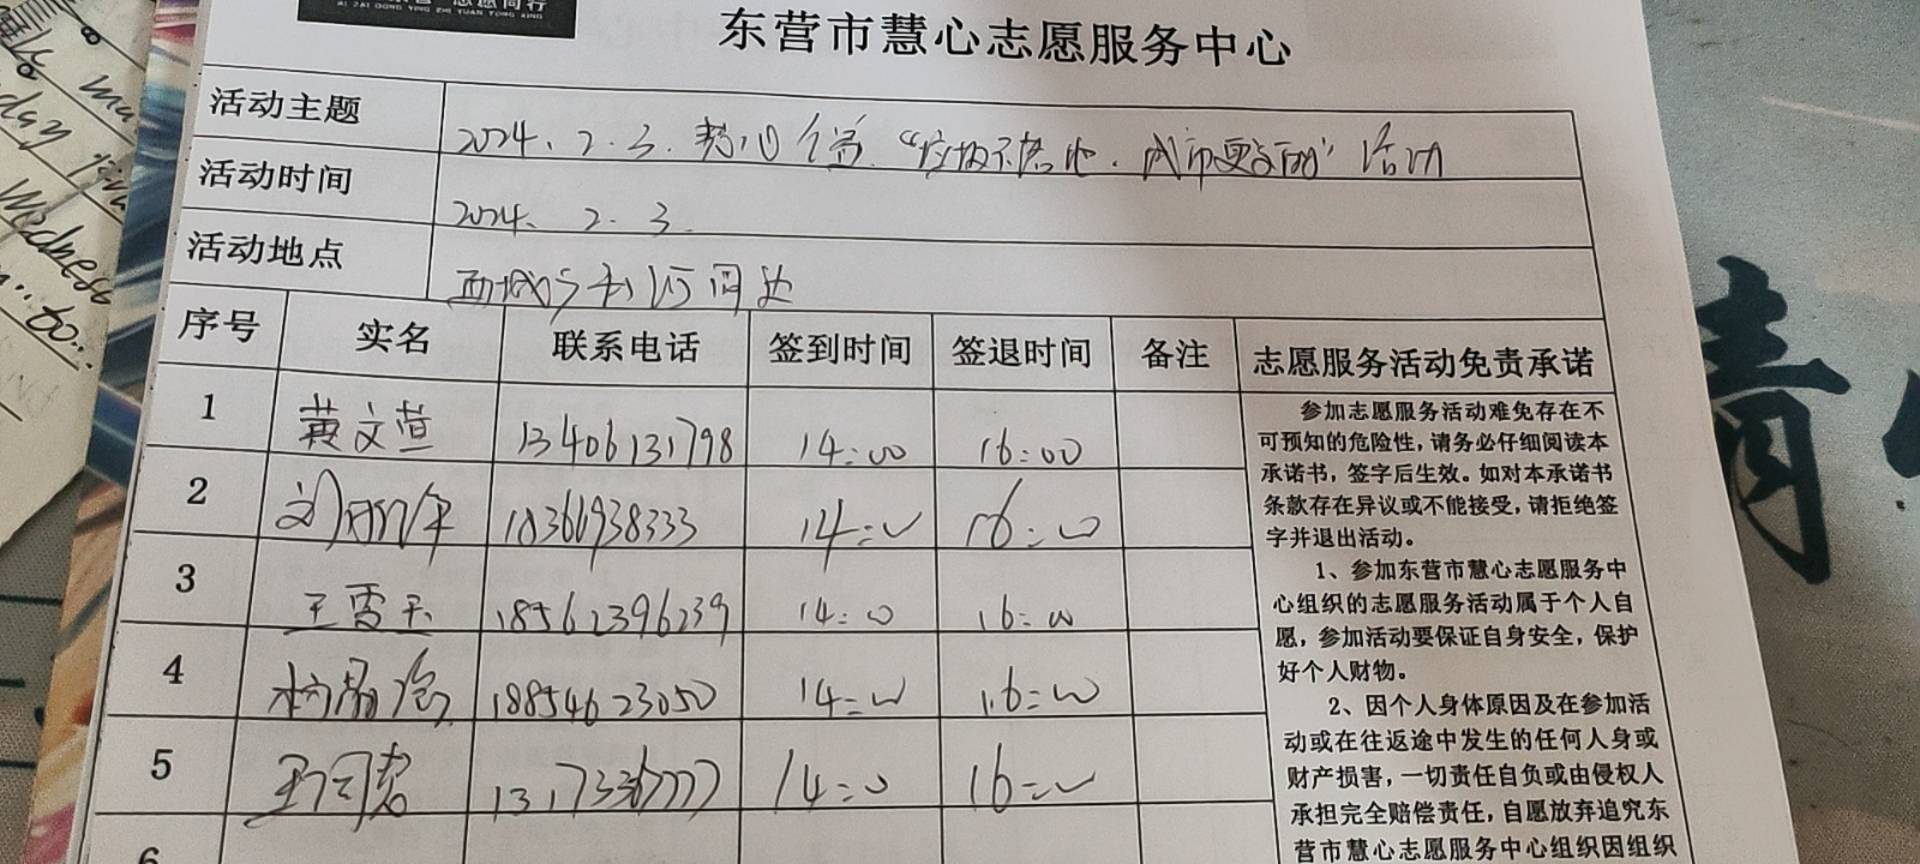 志愿同行
AI ZAI DONG YING ZHI YUAN TONG XING
东营市慧心志愿服务中心
活动主题 2024.2.3. "垃圾不落地.城市更美丽"活动
活动时间 2024.2.3.
活动地点 西城
序号 实名 联系电话 签到时间 签退时间 备注 志愿服务活动免责承诺
1 黄文萱 13406131798 14:00 16:00
2 18366938333 14:00 16:00
3 王雪玉 18562396239 14:00 16:00
4 18854623050 14:00 16:00
5 14:00 16:00
6
参加志愿服务活动难免存在不
可预知的危险性，请务必仔细阅读本
承诺书，签字后生效。如对本承诺书
条款存在异议或不能接受，请拒绝签
字并退出活动。
1、参加东营市慧心志愿服务中
心组织的志愿服务活动属于个人自
愿，参加活动要保证自身安全，保护
好个人财物。
2、因个人身体原因及在参加活
动或在往返途中发生的任何人身或
财产损害，一切责任自负或由侵权人
承担完全赔偿责任，自愿放弃追究东
营市慧心志愿服务中心组织因组织
day
Wednes
to...
青